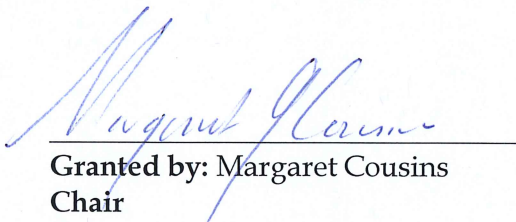 Margaret G Cousins
Granted by: Margaret Cousins
Chair